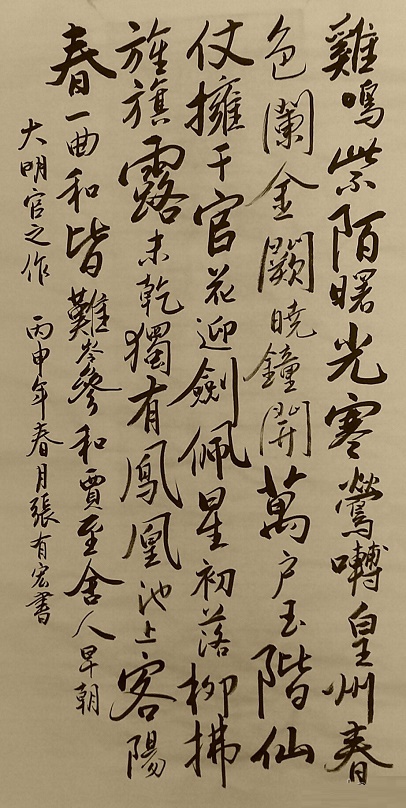 雞鳴紫陌曙光寒鶯囀皇州春
色闌金闕曉鐘開萬戶玉階仙
仗擁千官花迎劍佩星初落柳拂
旌旗露未乾獨有鳳凰池上客陽
春一曲和皆難岑參和賈至舍人早朝
大明宮之作 丙申年春月張有宏書